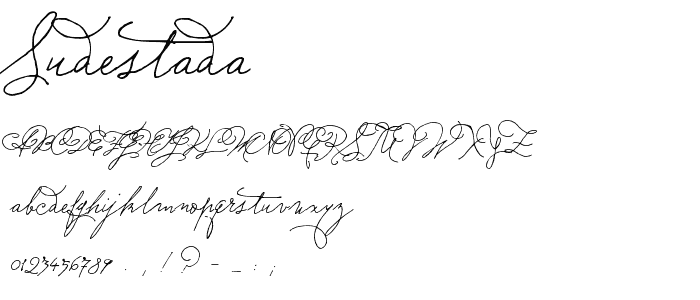 Sudestada
ABCDEFGHIJKLMNOPQRSTUVWXYZ
abcdefghijklmnopqrstuvwxyz
0123456789 . , ! ? - _ : ;